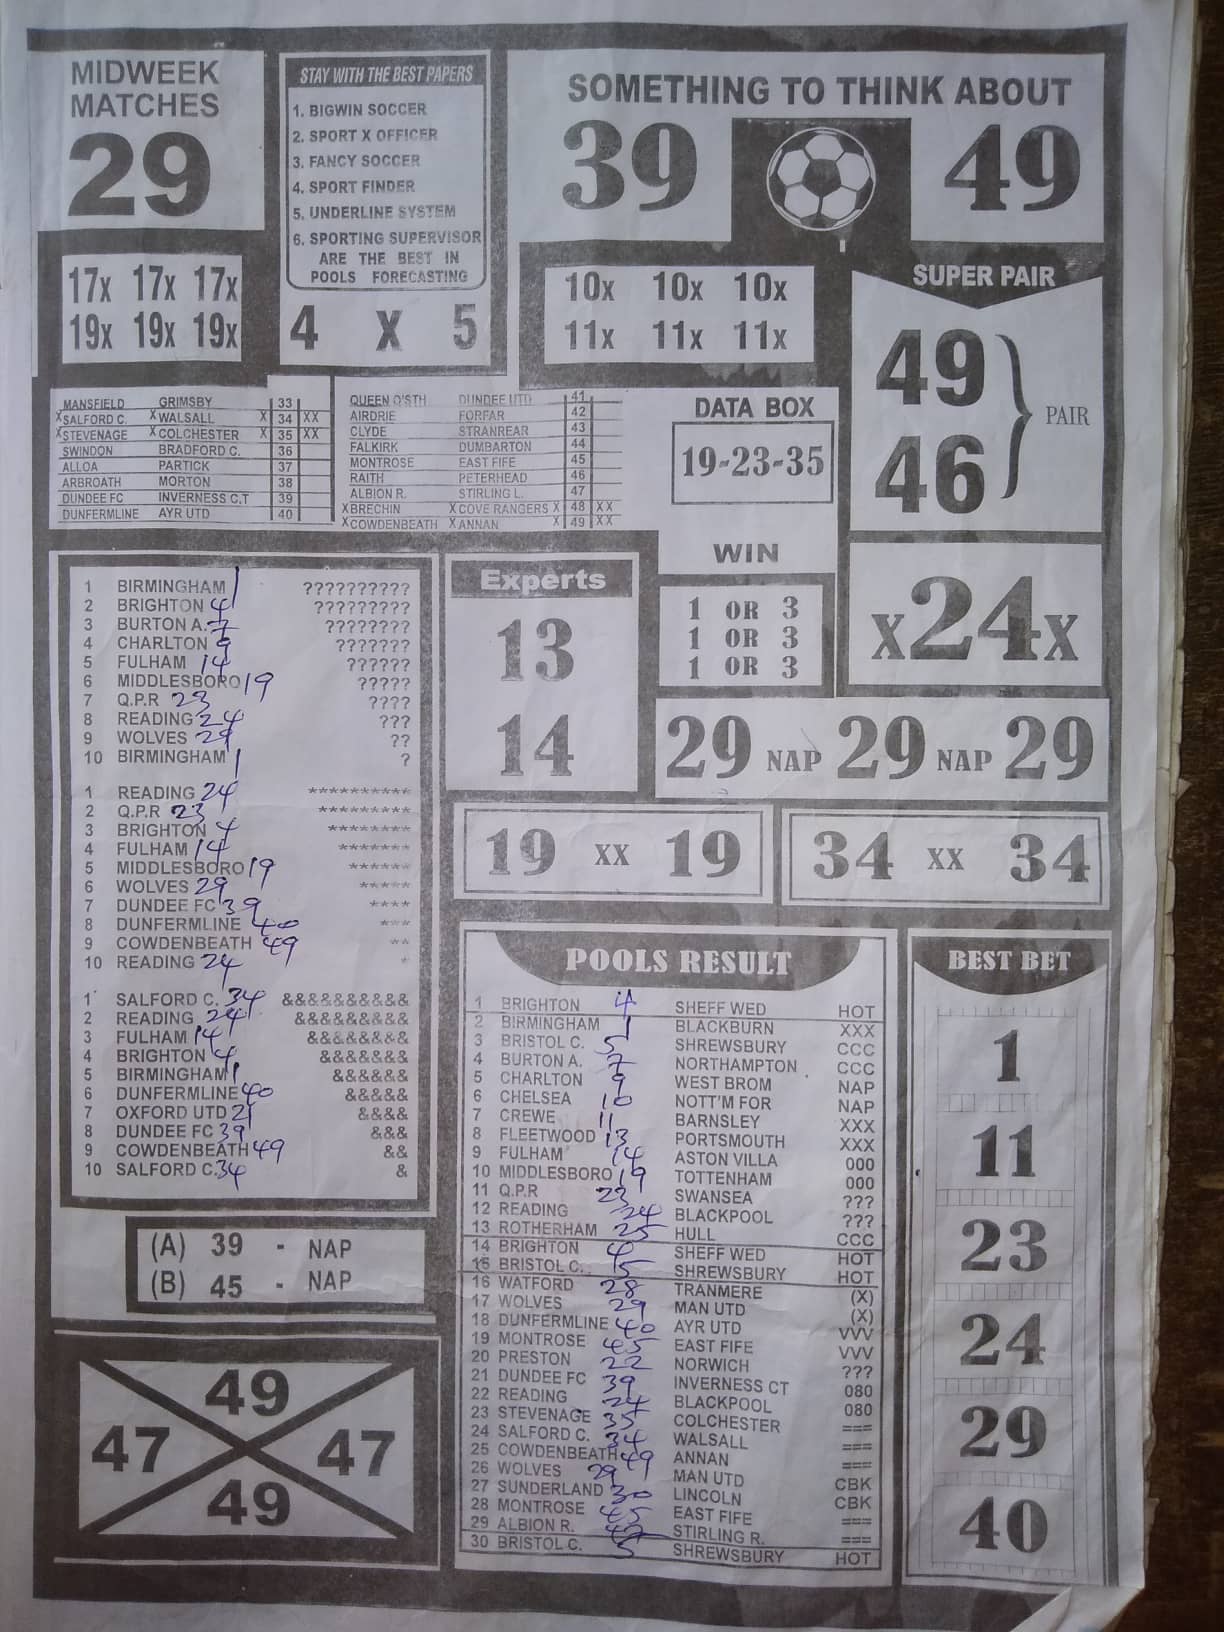 MIDWEEK
MATCHES
29
STAY WITH THE BEST PAPERS
1. BIGWIN SOCCER
2. SPORT X OFFICER
3. FANCY SOCCER
4. SPORT FINDER
5. UNDERLINE SYSTEM
6. SPORTING SUPERVISOR
ARE THE BEST IN
POOLS FORECASTING
SOMETHING TO THINK ABOUT
39 49
17x 17x 17x
19x 19x 19x
4 X 5
10x 10x 10x
11x 11x 11x
SUPER PAIR
49
46
PAIR
MANSFIELD GRIMSBY 33
X SALFORD C. X WALSALL X 34 XX
X STEVENAGE X COLCHESTER X 35 XX
SWINDON BRADFORD C. 36
ALLOA PARTICK 37
ARBROATH MORTON 38
DUNDEE FC INVERNESS C.T 39
DUNFERMLINE AYR UTD 40
QUEEN O'STH DUNDEE UTD 41
AIRDRIE FORFAR 42
CLYDE STRANREAR 43
FALKIRK DUMBARTON 44
MONTROSE EAST FIFE 45
RAITH PETERHEAD 46
ALBION R. STIRLING L. 47
X BRECHIN X COVE RANGERS X 48 XX
X COWDENBEATH X ANNAN X 49 XX
DATA BOX
19-23-35
WIN
1 OR 3
1 OR 3
1 OR 3
X24X
1 BIRMINGHAM 1 ??????????
2 BRIGHTON 4 ?????????
3 BURTON A. 7 ????????
4 CHARLTON 9 ???????
5 FULHAM 14 ??????
6 MIDDLESBORO 19 ?????
7 Q.P.R 23 ????
8 READING 24 ???
9 WOLVES 29 ??
10 BIRMINGHAM 1 ?
1 READING 24 **********
2 Q.P.R 23 *********
3 BRIGHTON 4 ********
4 FULHAM 14 *******
5 MIDDLESBORO 19 ******
6 WOLVES 29 *****
7 DUNDEE FC 39 ****
8 DUNFERMLINE 40 ***
9 COWDENBEATH 49 **
10 READING 24 *
1 SALFORD C. 34 &&&&&&&&&&
2 READING 24 &&&&&&&&&
3 FULHAM 14 &&&&&&&&
4 BRIGHTON 4 &&&&&&&
5 BIRMINGHAM 1 &&&&&&
6 DUNFERMLINE 40 &&&&&
7 OXFORD UTD 21 &&&&
8 DUNDEE FC 39 &&&
9 COWDENBEATH 49 &&
10 SALFORD C. 34 &
Experts
13
14
29 NAP 29 NAP 29
19 XX 19
34 XX 34
(A) 39 - NAP
(B) 45 - NAP
49
47 47
49
POOLS RESULT
1 BRIGHTON 4 SHEFF WED HOT
2 BIRMINGHAM 1 BLACKBURN XXX
3 BRISTOL C. 5 SHREWSBURY CCC
4 BURTON A. 7 NORTHAMPTON CCC
5 CHARLTON 9 WEST BROM NAP
6 CHELSEA 10 NOTT'M FOR NAP
7 CREWE 11 BARNSLEY XXX
8 FLEETWOOD 13 PORTSMOUTH XXX
9 FULHAM 14 ASTON VILLA 000
10 MIDDLESBORO 19 TOTTENHAM 000
11 Q.P.R 23 SWANSEA ???
12 READING 24 BLACKPOOL ???
13 ROTHERHAM 25 HULL CCC
14 BRIGHTON 4 SHEFF WED HOT
15 BRISTOL C. 5 SHREWSBURY HOT
16 WATFORD 28 TRANMERE (X)
17 WOLVES 29 MAN UTD (X)
18 DUNFERMLINE 40 AYR UTD VVV
19 MONTROSE 45 EAST FIFE VVV
20 PRESTON 22 NORWICH ???
21 DUNDEE FC 39 INVERNESS CT 080
22 READING 24 BLACKPOOL 080
23 STEVENAGE 35 COLCHESTER ===
24 SALFORD C. 34 WALSALL ===
25 COWDENBEATH 49 ANNAN ===
26 WOLVES 29 MAN UTD CBK
27 SUNDERLAND 30 LINCOLN CBK
28 MONTROSE 45 EAST FIFE ===
29 ALBION R. 47 STIRLING R. ===
30 BRISTOL C. 5 SHREWSBURY HOT
BEST BET
1
11
23
24
29
40